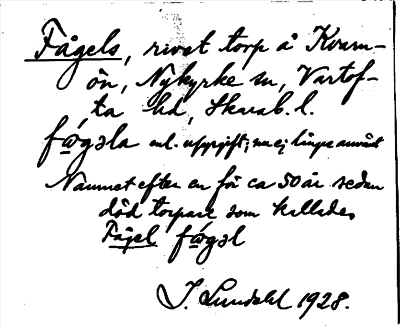 Fågels, rivet torp å Kvarn-
ön, Nykyrke sn, Vartof-
ta hd, Skarab. l.
fǿgəla enl. uppgift; nu ej längre använt
Namnet efter en för ca 50 år sedan
död torpare som kallades
Fågel fǿgəl
J. Lundahl 1928.